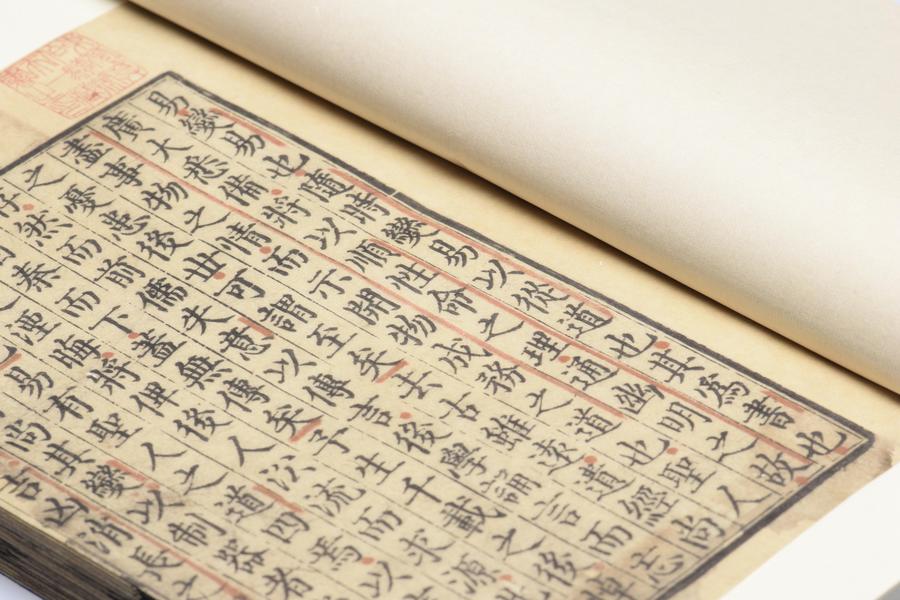 易變易也隨時變易以從道也其為書也
廣大悉備將以順性命之理通幽明之故
盡事物之情而示開物成務之道也聖人
之憂患後世可謂至矣去古雖遠遺經尚
存然而前儒失意以傳言後學誦言而忘
秦而下蓋無傳矣予生千載之後悼
湮晦將俾後人㳂流而求源此
易有聖人之道四焉以
尚其變以制器者
吉凶消長之